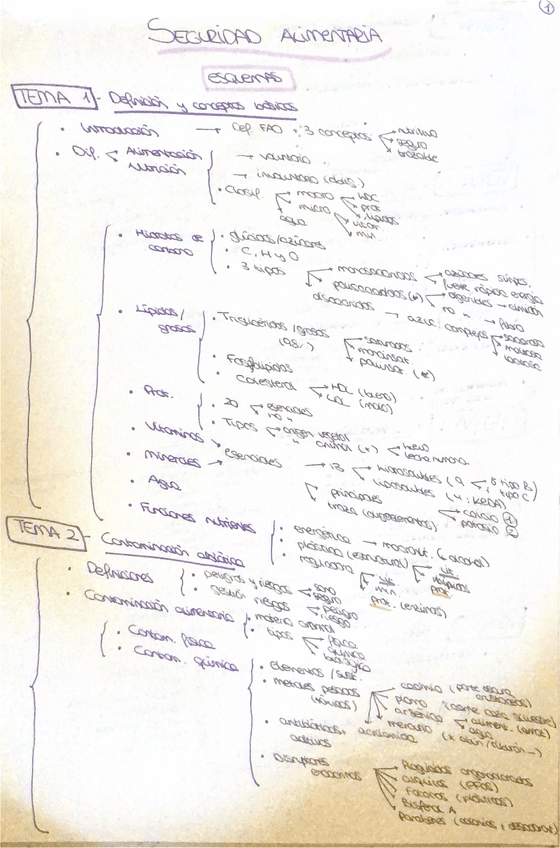 1
SEGURIDAD ALIMENTARIA
ESQUEMAS
TEMA 1 - Definición y conceptos básicos
· Introducción → Def. FAO + 3 conceptos
nutritivo
seguro
· Dif. Alimentación → voluntario
Nutrición → involuntario
· Clasif. macro HDC
prot
lípidos
micro vitam
min.
agua
· Hidratos de carbono · glúcidos/azúcares
· C, H y O
· 3 tipos
monosacáridos azúcares simples
fuente rápida energía
polisacáridos (*) digeribles → almidón
no " → fibra
disacáridos → azúc. complejos
sacarosa
maltosa
lactosa
· Lípidos/grasas · Triglicéridos/grasas
saturadas
monoinsat.
poliinsat. (*)
· Fosfolípidos
· Colesterol HDL (bueno)
LDL (malo)
· Prot. · 20 esenciales
no "
· Tipos origen vegetal
animal (*) huevo
leche materna
· Vitaminas
· Minerales → esenciales → 13
hidrosolubles (9) 8 tipo B
1 tipo C
liposolubles (4: KEDA)
principales calcio 1
potasio 2
traza (oligoelementos)
· Agua
· Funciones nutrientes · energética → macronut. (6 alcohol)
· plástica (estructural)
prot.
· reguladora
vit.
min.
prot. (enzimas)
TEMA 2 - Contaminación abiótica
· Definiciones · peligros y riesgos
· gestión riesgos peligro
riesgo
· Contaminación alimentaria · materia
· tipos física
química
biológica
· Contam. física
· Contam. química · elementos / sust.
· metales pesados
cadmio (parte oscura crustáceos)
plomo (carne caza silvestre)
arsénico aliment. (arroz)
agua
mercurio
· antibióticos + aditivos acrilamida
· Disruptores endocrinos
Plaguicidas organoclorados
(PFOS)
Ftalatos (plásticos)
Bisfenol A
Parabenes